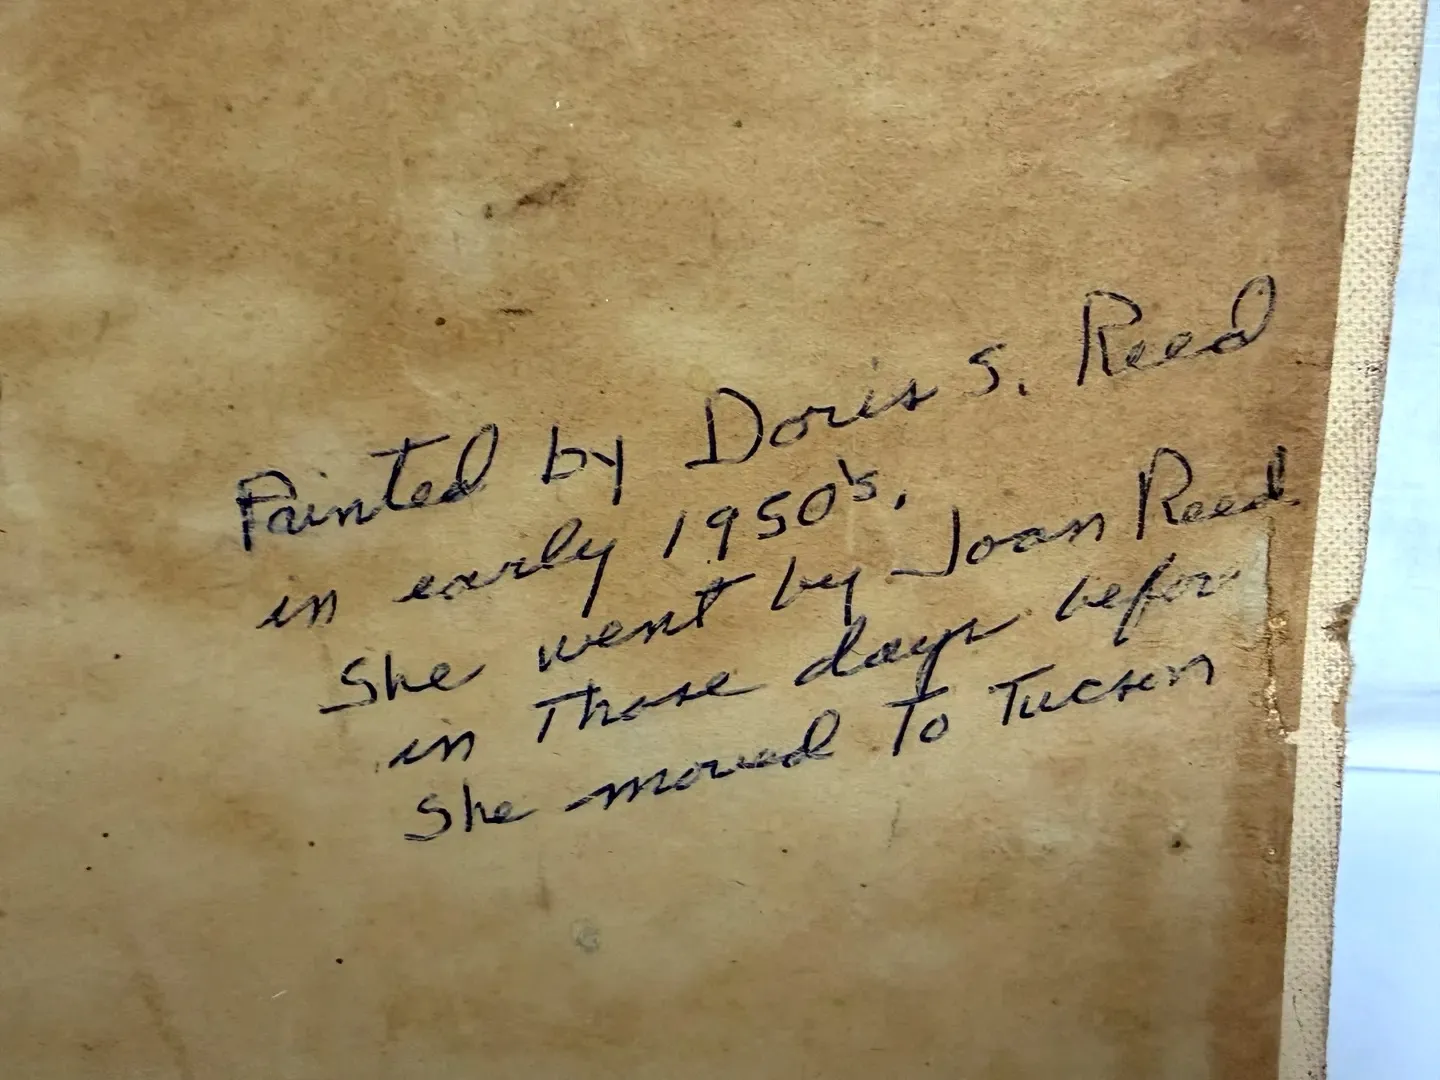 Painted by Doris S. Reed
in early 1950's.
She went by Joan Reed
in Those days before
She moved To Tucson